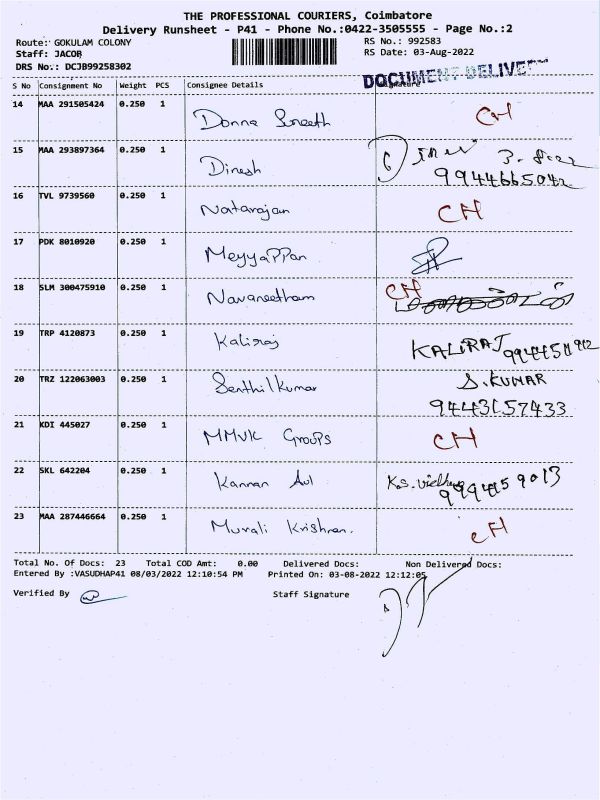 THE PROFESSIONAL COURIERS, Coimbatore
Delivery Runsheet - P41 - Phone No.:0422-3505555 - Page No.:2
Route: GOKULAM COLONY RS No.: 992583
Staff: JACOB RS Date: 03-Aug-2022
DRS No.: DCJB99258302
DOCUMENT DELIVE
S No Consignment No Weight PCS Consignee Details Signature
14 MAA 291505424 0.250 1 Donna Suneeth CH
15 MAA 293897364 0.250 1 Dinesh
9944665042
16 TVL 9739560 0.250 1 Natarajan CH
17 PDK 8010920 0.250 1 Meyyappan
18 SLM 300475910 0.250 1 Navaneetham CH
19 TRP 4120873 0.250 1 Kaliraj KALIRAJ
20 TRZ 122063003 0.250 1 Senthilkumar S.KUMAR
9443157433
21 KDI 445027 0.250 1 MMVK Groups CH
22 SKL 642204 0.250 1 Kannan Avl K.S.
9994459013
23 MAA 287446664 0.250 1 Murali Krishnan. CH
Total No. Of Docs: 23 Total COD Amt: 0.00 Delivered Docs: Non Delivered Docs:
Entered By :VASUDHAP41 08/03/2022 12:10:54 PM Printed On: 03-08-2022 12:12:05
Verified By Staff Signature